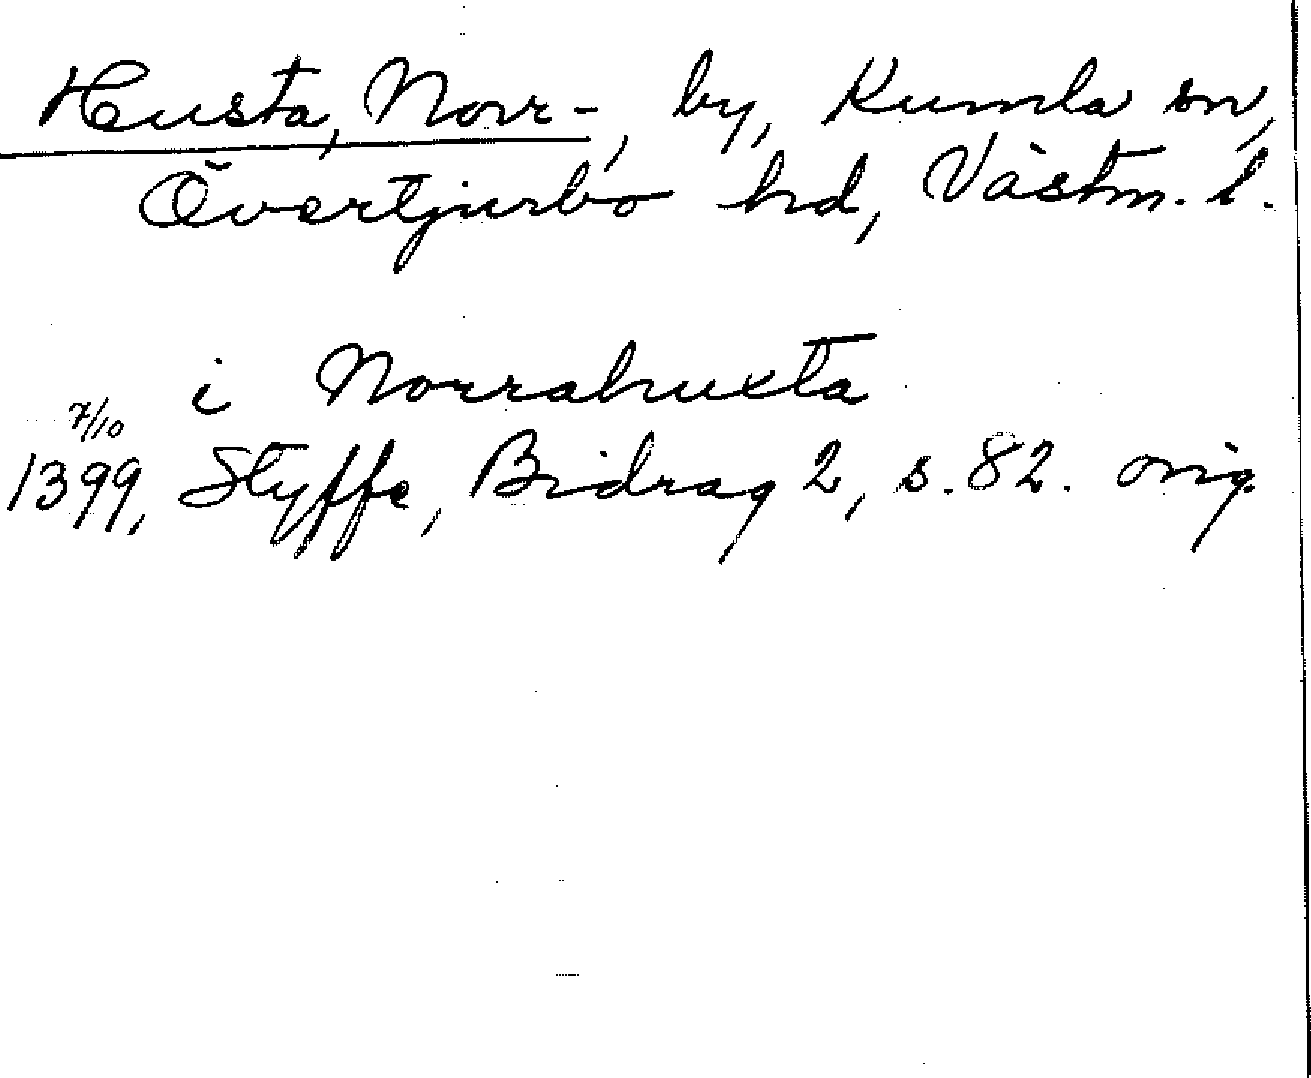 Husta, Norr-, by, Kumla sn,
Övertjurbo hd, Västm. l.
i Norrahusta
7/10
1399, Styffe, Bidrag 2, s. 82. orig.